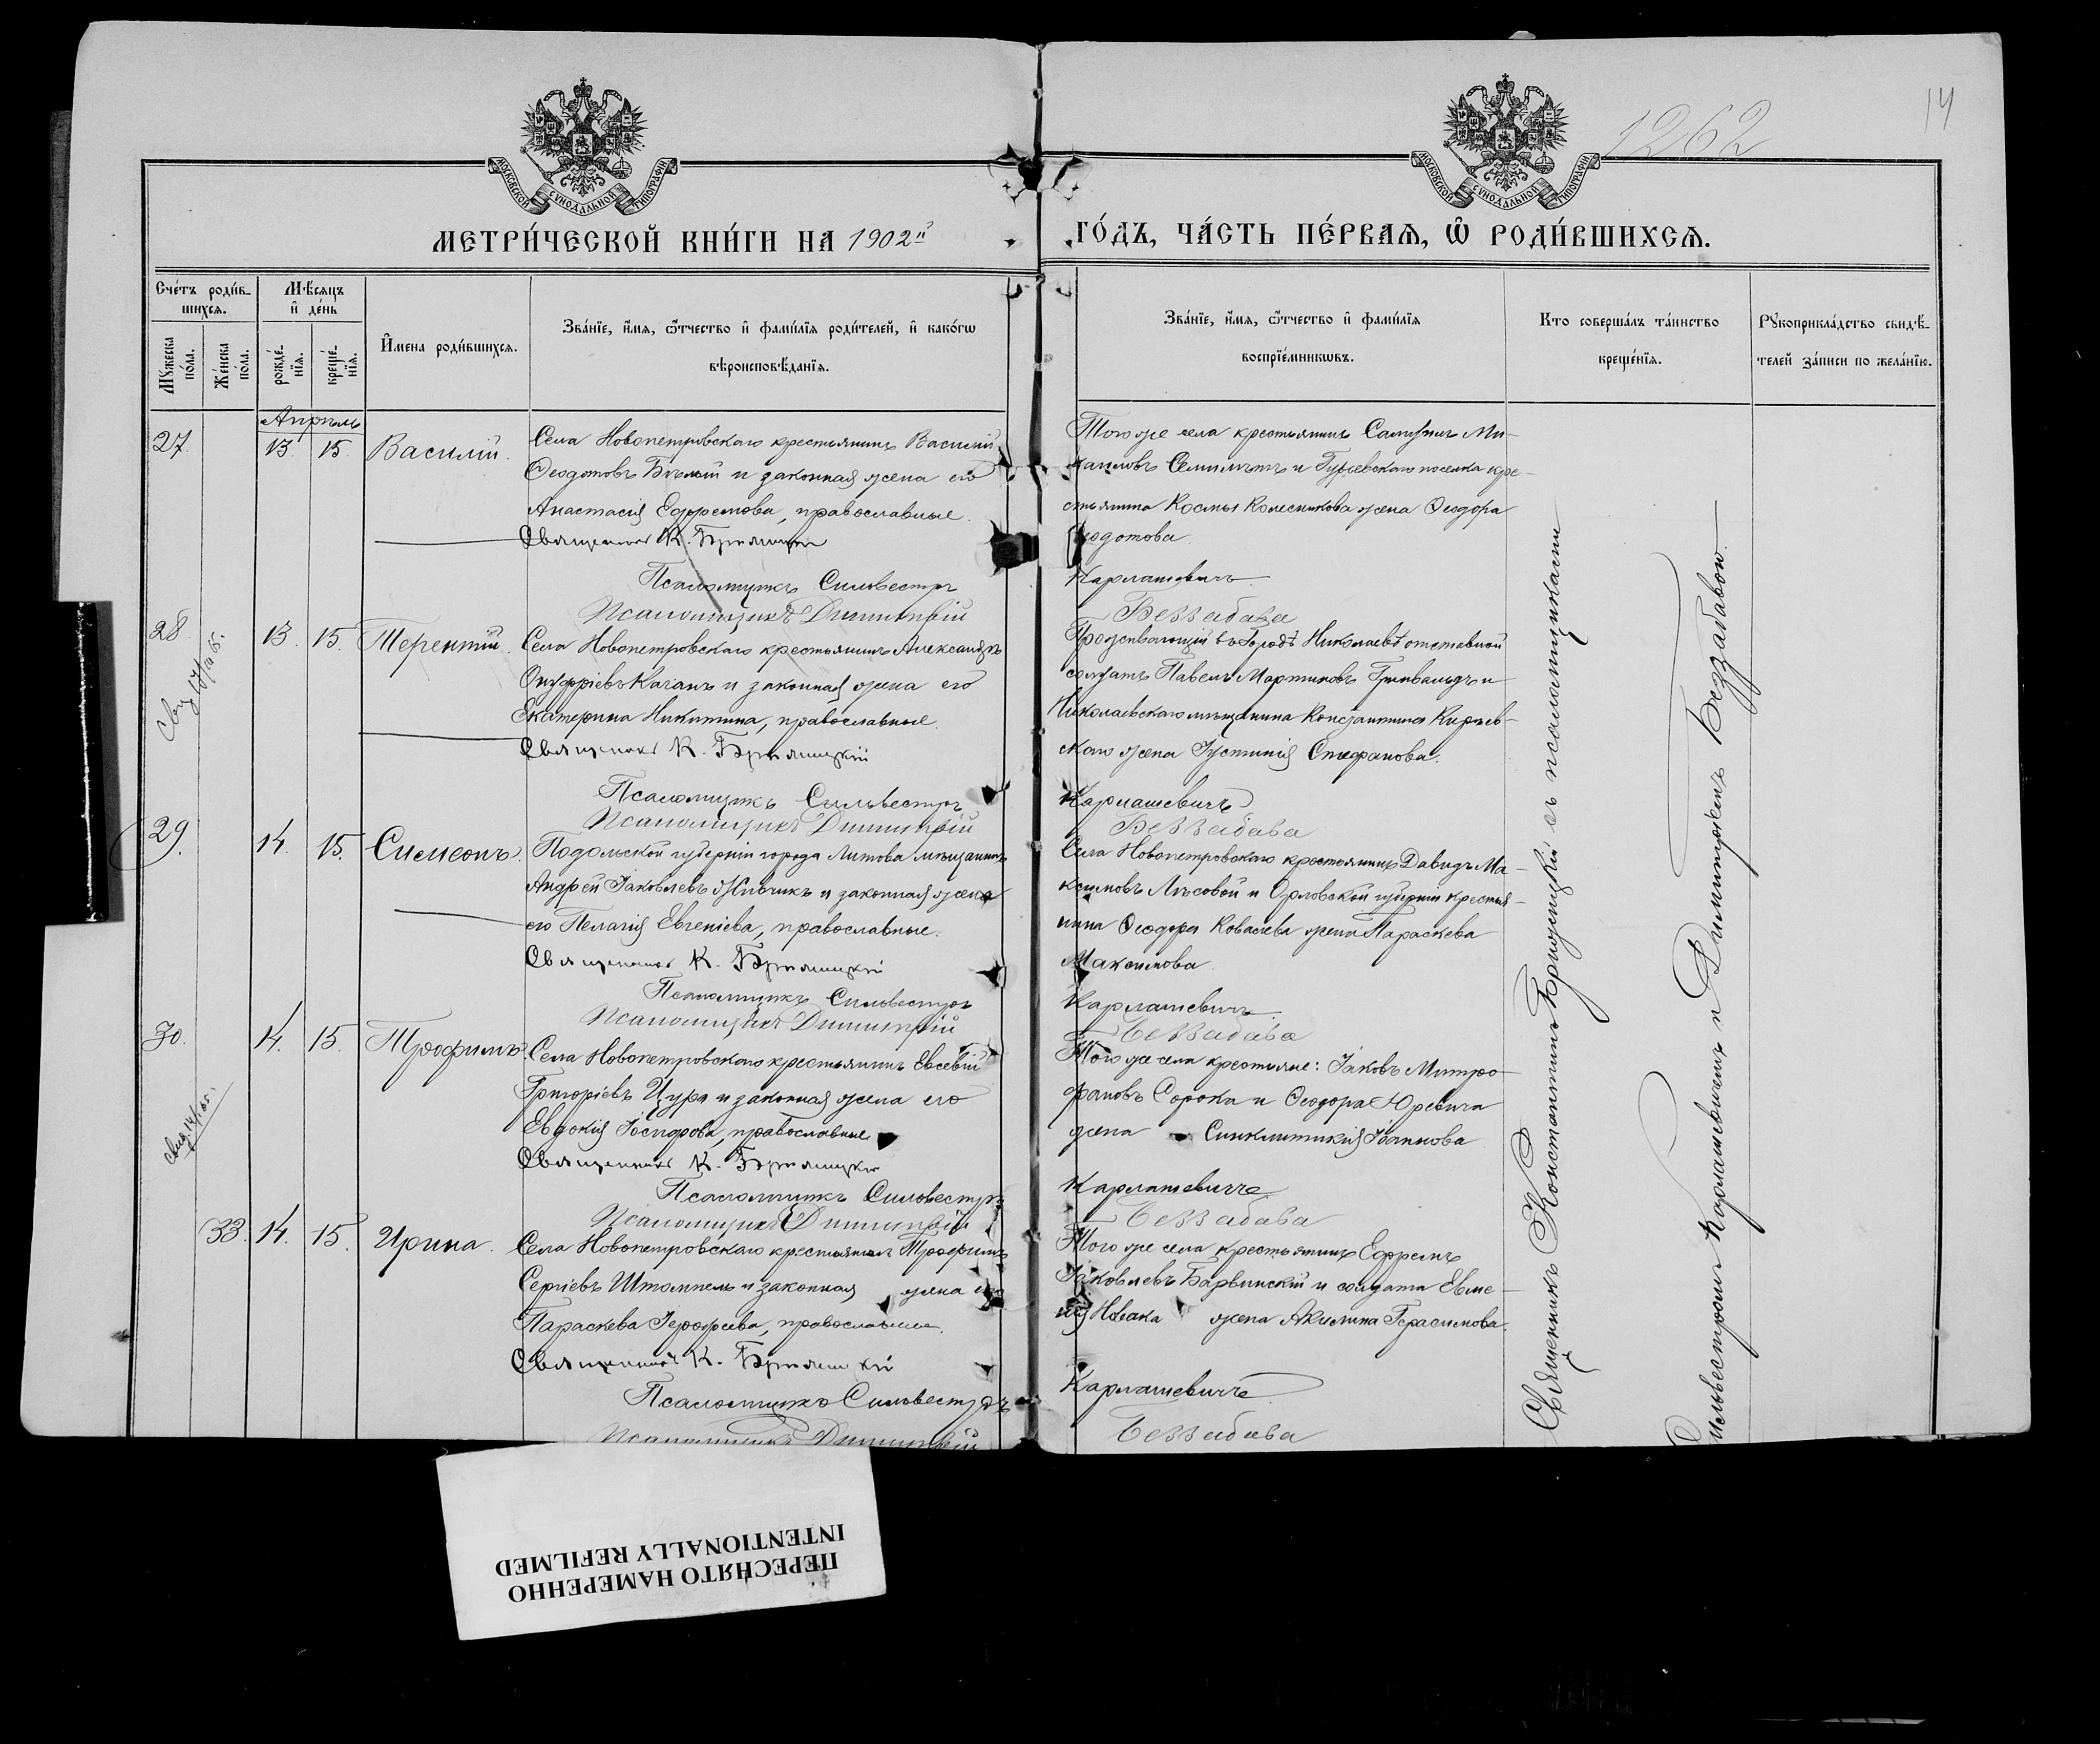 1262
14
МОСКОВСКОЙ СѴНОДАЛЬНОЙ ТИПОГРАФІИ
МОСКОВСКОЙ СѴНОДАЛЬНОЙ ТИПОГРАФІИ
МЕТРИ́ЧЕСКОЙ КНИ́ГИ НА 1902й
ГО́ДЪ, ЧА́СТЬ ПЕ́РВАѦ, Ѽ РОДИ́ВШИХСѦ.
Сче́тъ роди́в-
шихсѧ.
Мꙋжеска по́ла.
Же́нска по́ла.
Мѣ́сѧцъ
и҆ де́нь
рожде́-
нїѧ.
креще́-
нїѧ.
И҆мена роди́вшихсѧ.
Зва́нїе, и҆́мѧ, ѻ҆́тчество и҆ фами́лїѧ роди́телей, и҆ како́гѡ
вѣроисповѣ́данїѧ.
Зва́нїе, и҆́мѧ, ѻ҆́тчество и҆ фами́лїѧ
воспрїе́мникѡвъ.
Кто соверша́лъ та́инство
креще́нїѧ.
Рꙋкоприкла́дство свидѣ́-
телей за́писи по жела́нїю.
Апрѣль
27.
13.
15.
Василій.
Села Новопетровскаго крестьянинъ Василій
Ѳеодотовъ Бѣлый и законная жена его
Анастасія Ефремова, православные.
Священникъ К. Брижицкій
Псаломщикъ Сильвестръ
Псаломщикъ Димитрій
Того же села крестьянинъ Самуилъ Ми-
хаиловъ Семилѣтъ и Гурьевскаго поселка кре-
стьянина Космы Колесникова жена Ѳеодора
Ѳеодотова.
Карлашевичъ
Беззабава
28.
13.
15.
Терентій.
Села Новопетровскаго крестьянинъ Александръ
Онуфріевъ Качанъ и законная жена его
Екатерина Никитина, православные.
Священникъ К. Брижицкій
Псаломщикъ Сильвестръ
Псаломщикъ Димитрій
Проживающій въ городѣ Николаевѣ отставной
солдатъ Павелъ Мартиновъ Гринвальдъ и
Николаевскаго мѣщанина Константина Кирѣев-
скаго жена Іустинія Стефанова.
Карлашевичъ
Беззабава
29.
14.
15.
Симеонъ.
Подольской губерніи города Литова мѣщанинъ
Андрей Іаковлевъ Живчикъ и законная жена
его Пелагія Евгеніева, православные.
Священникъ К. Брижицкій
Псаломщикъ Сильвестръ
Псаломщикъ Димитрій
Села Новопетровскаго крестьянинъ Давидъ Ма-
ксимовъ Лѣсовой и Орловской губерніи крестья-
нина Ѳеодора Ковалева жена Параскева
Максимова.
Карлашевичъ
Беззабава
30.
14.
15.
Трофимъ.
Села Новопетровскаго крестьянинъ Евсевій
Григоріевъ Цура и законная жена его
Евдокія Іосифова, православные
Священникъ К. Брижицкій
Псаломщикъ Сильвестръ
Псаломщикъ Димитрій
Того же села крестьяне: Іаковъ Митро-
фановъ Сорока и Ѳеодора Юревича
жена Синклитикія Іоаннова
Карлашевичъ
Беззабава
33.
14.
15.
Ирина.
Села Новопетровскаго крестьянинъ Трофимъ
Сергіевъ Штомпель и законная жена его
Параскева Іероѳеева, православные.
Священникъ К. Брижицкій
Псаломщикъ Сильвестръ
Псаломщикъ Димитрій
Того же села крестьянинъ Ефремъ
Іаковлевъ Барвинскій и солдата Евме-
нія Новака жена Акилина Герасимова.
Карлашевичъ
Беззабава
Священникъ Константинъ Брижицкій съ псаломщиками
Сильвестромъ Карлашевичемъ и Димитріемъ Беззабавой.
ПЕРЕСНЯТО НАМЕРЕННО
INTENTIONALLY REFILMED